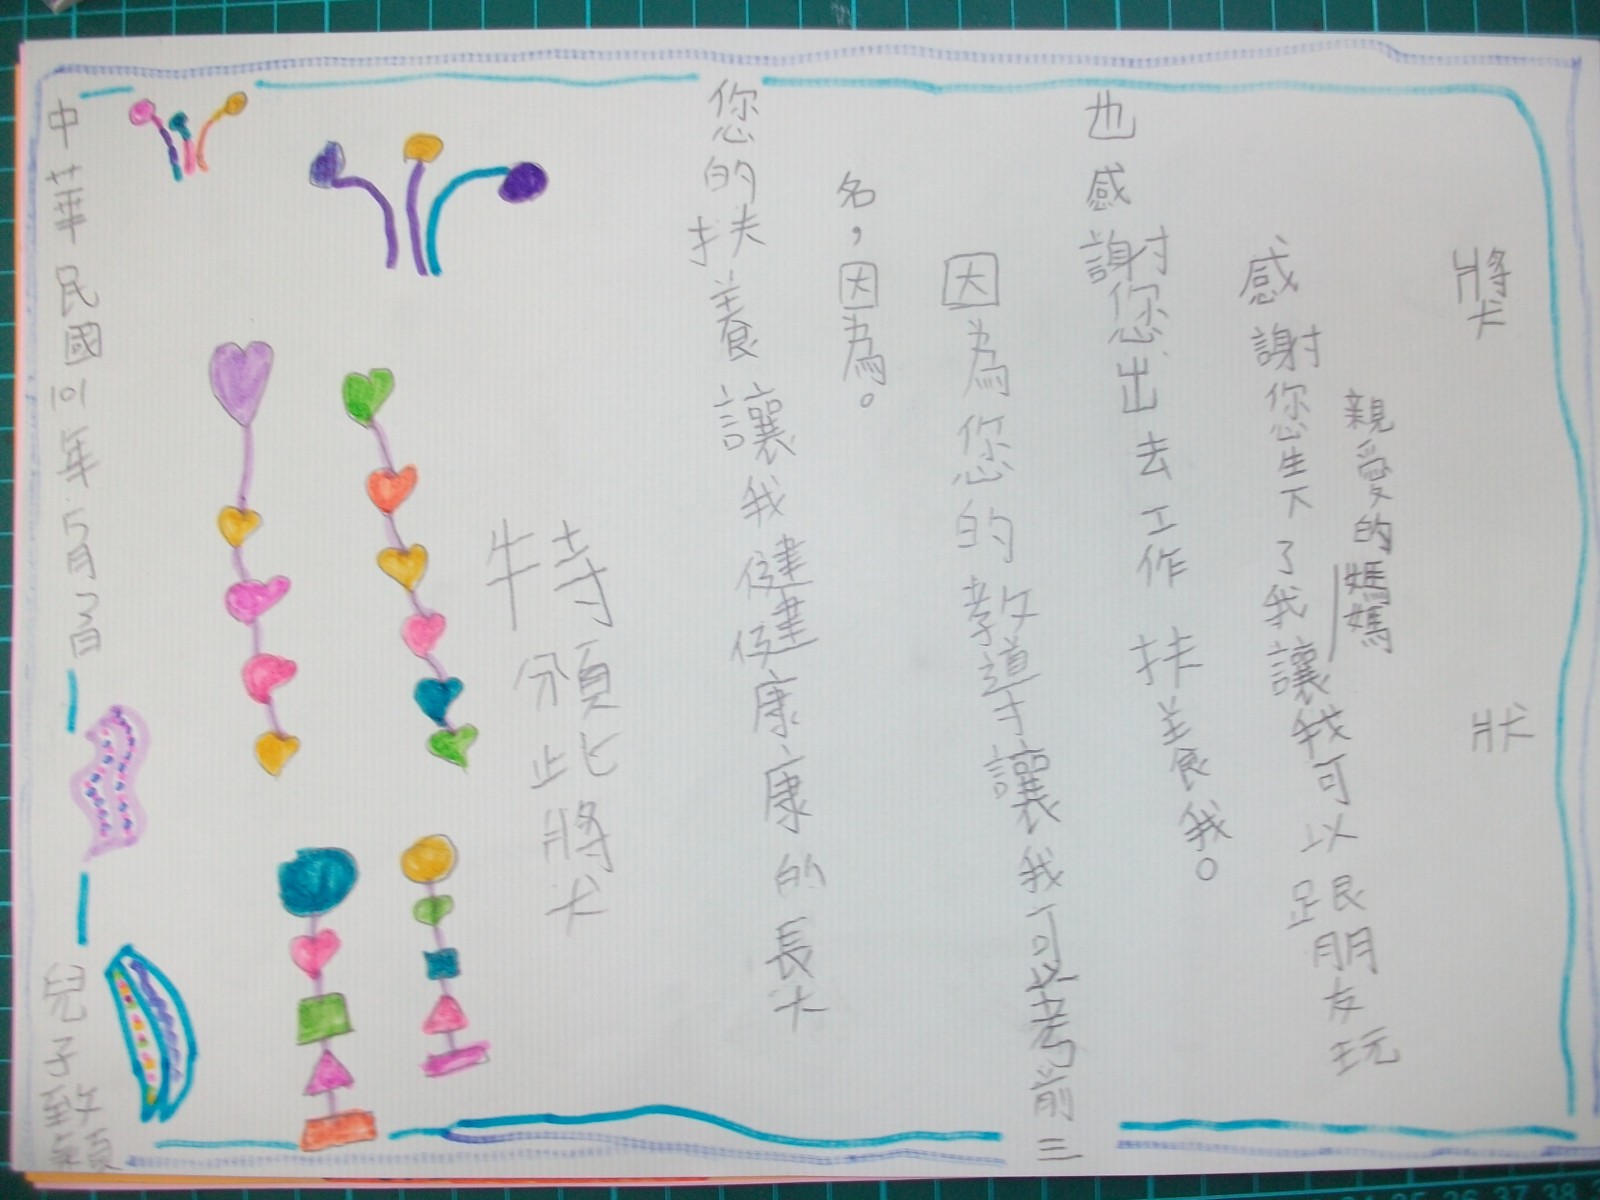 獎狀
親愛的媽媽
感謝您生下了我讓我可以跟朋友玩
也感謝您出去工作扶養我。
因為您的教導讓我可以考前三
名，因為。
您的扶養讓我健健康康的長大
特頒此獎
中華民國101年5月 日
兒子致